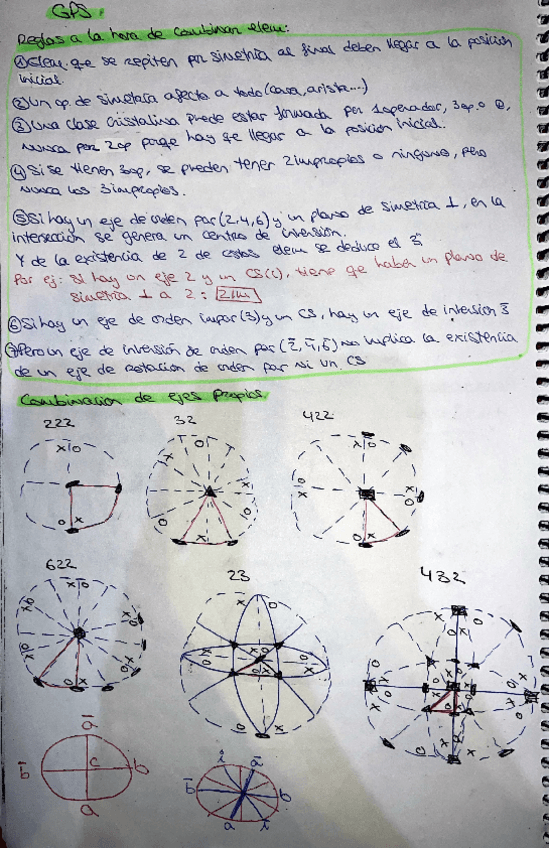 GPS:
Reglas a la hora de combinar elem:
① Elem. que se repiten por simetría al final deben llegar a la posición
inicial.
② Un op. de simetría afecta a todo (cara, arista...)
③ Una clase cristalina puede estar formada por 1 operador, 3 op. o
nunca por 2 op porqe hay qe llegar a la posición inicial.
④ Si se tienen 3 op, se pueden tener 2 impropios o ninguno, pero
nunca los 3 impropios.
⑤ Si hay un eje de orden par (2,4,6) y un plano de simetría ⊥, en la
intersección se genera un centro de inversión.
Y de la existencia de 2 de estos elem se deduce el 3
Por ej: Si hay un eje 2 y un CS(i), tiene qe haber un plano de
simetría ⊥ a 2: 2/m
⑥ Si hay un eje de orden impar (3) y un CS, hay un eje de inversión 3̅
⑦ Pero un eje de inversión de orden par (2̅, 4̅, 6̅) no implica la existencia
de un eje de rotación de orden par ni un CS
Combinación de ejes propios
222 32 422
x o
o x
622 23 432
a̅
b̅ c b
a
i a̅
b̅ b
a i